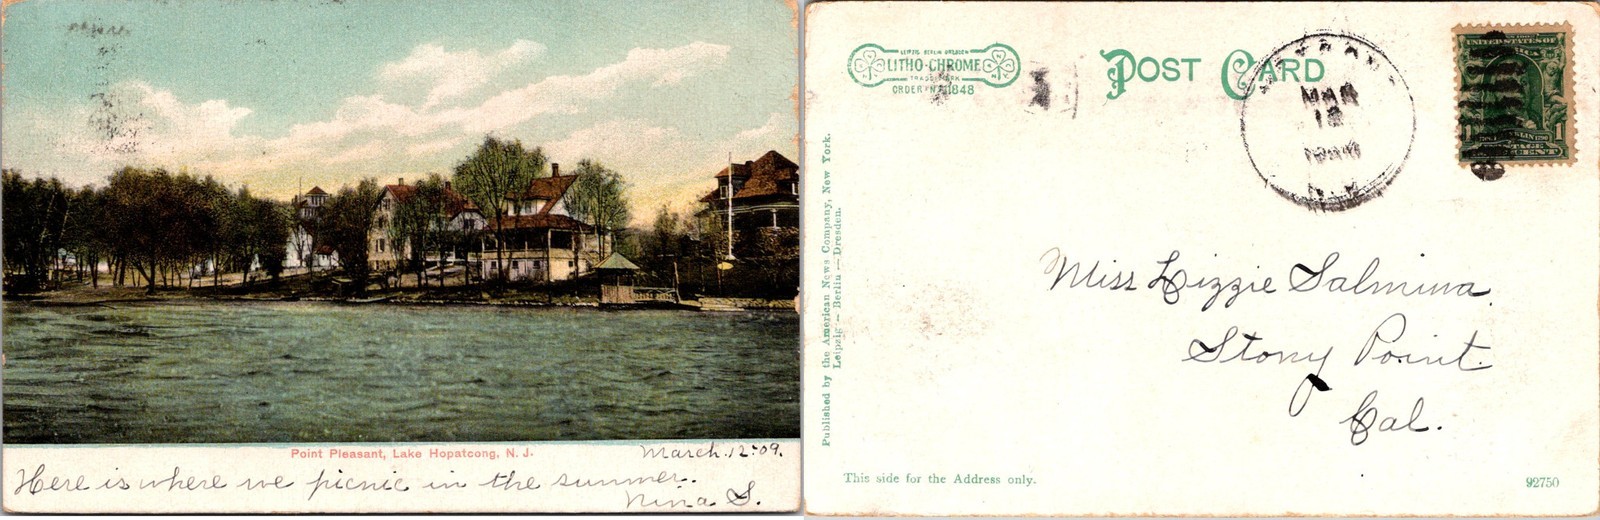 Point Pleasant, Lake Hopatcong, N. J.
March. 12-09.
Here is where we picnic in the summer.
Nina S.
LEIPZIG BERLIN DRESDEN
LITHO-CHROME
TRADE MARK
ORDER Nº 1848
POST CARD
MAR
12
N.J.
UNITED STATES OF
1 FRANKLIN 1790 1
POSTAGE
ONE CENT
Published by the American News Company, New York.
Leipzig — Berlin — Dresden.
Miss Lizzie Salmina.
Stony Point.
Cal.
This side for the Address only.
92750